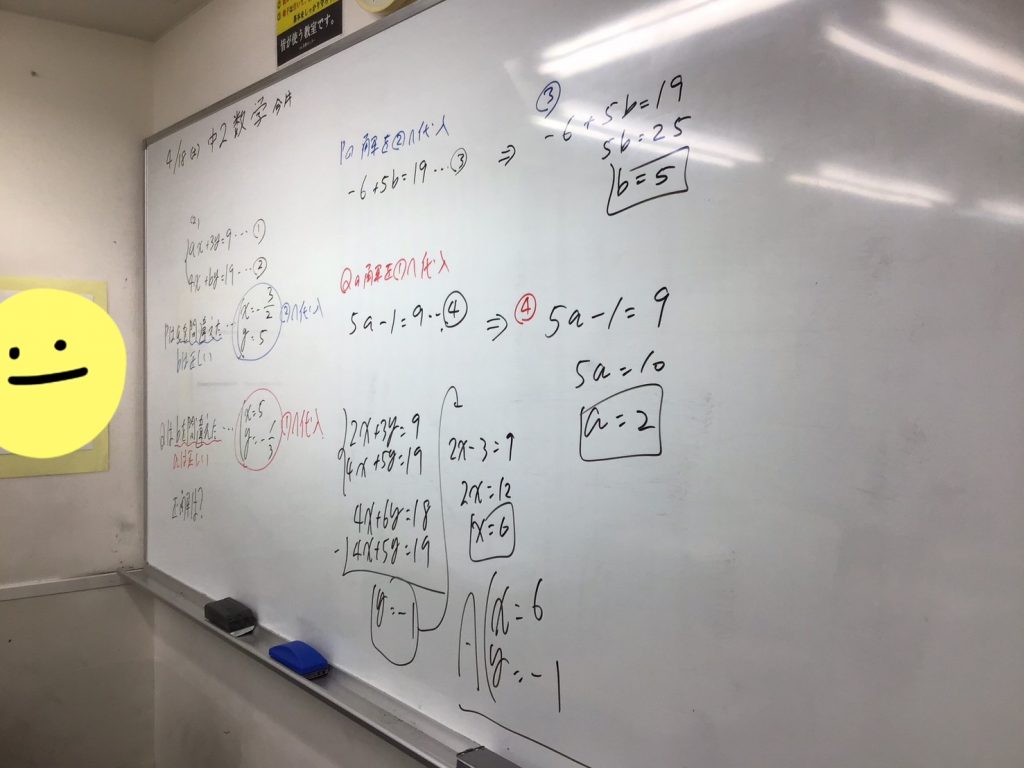 皆が使う教室です。
4/18 中2 数学
(2)
ax+3y=9… ①
4x+by=19… ②
Pはaを間違えた…
bは正しい
x=-3/2
y=5
②へ代入
Qはbを間違えた…
aは正しい
x=5
y=-1/3
①へ代入
正解は?
Pの解を②へ代入
-6+5b=19…③ ⇒
③
-6+5b=19
5b=25
b=5
Qの解を①へ代入
5a-1=9…④ ⇒
④ 5a-1=9
5a=10
a=2
2x+3y=9
4x+5y=19
4x+6y=18
-)4x+5y=19
y=-1
2x-3=9
2x=12
x=6
x=6
y=-1